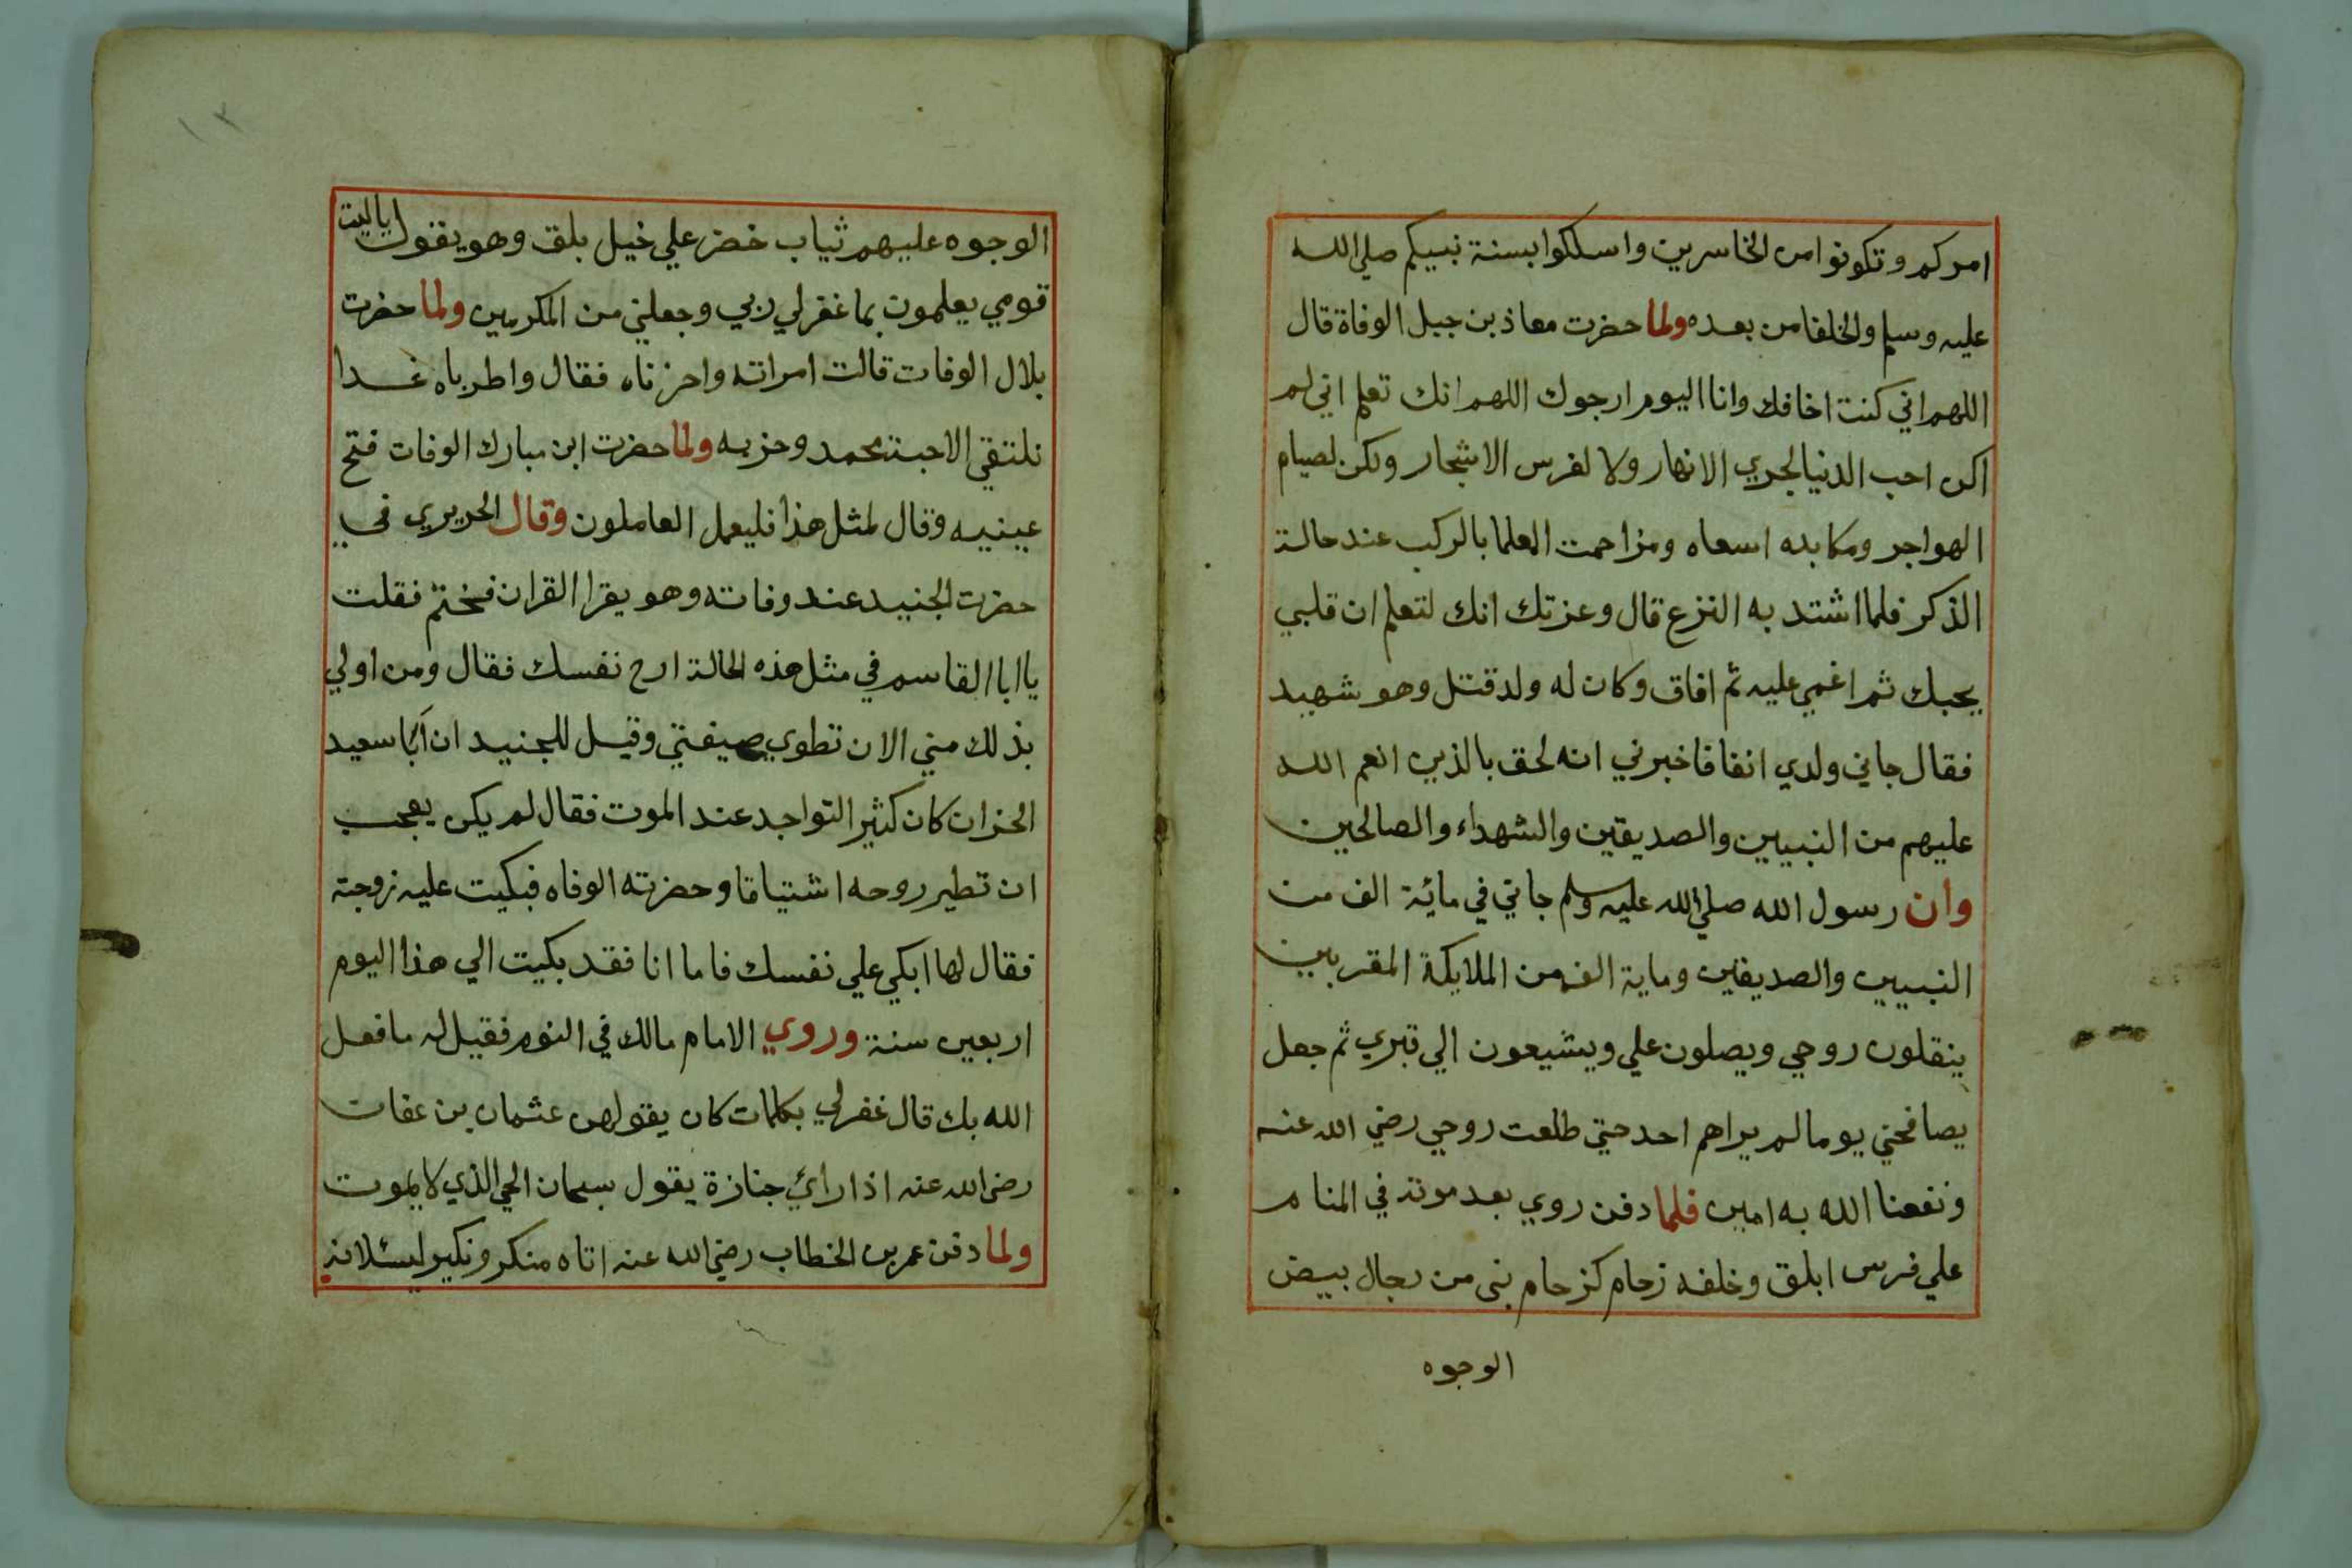 امركم وتكونوا من الخاسرين واسلكوا بسنة نبيكم صلي الله
عليه وسلم والخلفا من بعده ولما حضرت معاذ بن جبل الوفاة قال
اللهم اني كنت اخافك وانا اليوم ارجوك اللهم انك تعلم اني لم
اكن احب الدنيا لجري الانهار ولا لغرس الاشجار ولكن لصيام
الهواجر ومكابده اسعاه ومزاحمت العلما بالركب عند حالة
الذكر فلما اشتد به النزع قال وعزتك انك لتعلم ان قلبي
يحبك ثم اغمي عليه ثم افاق وكان له ولد قتل وهو شهيد
فقال جاني ولدي انفا فاخبرني انه لحق بالذين انعم الله
عليهم من النبيين والصديقين والشهداء والصالحين
وان رسول الله صلي الله عليه وسلم جاني في مائة الف من
النبيين والصديقين وماية الف من الملايكة المقربين
ينقلون روحي ويصلون علي ويشيعون الي قبري ثم جعل
يصافحني يوما لم يراهم احد حتي طلعت روحي رضي الله عنه
ونفعنا الله به امين فلما دفن روي بعد موته في المنام
علي فرس ابلق وخلفه زحام كزحام بني من رجال بيض
الوجوه
١٣
الوجوه عليهم ثياب خضر علي خيل بلق وهو يقول ياليت
قومي يعلمون بما غفر لي ربي وجعلني من المكرمين ولما حضرت
بلال الوفات قالت امراته واحزناه فقال واطرباه غدا
نلتقي الاحبة محمد وحزبه ولما حضرت ابن مبارك الوفات فتح
عينيه وقال لمثل هذا فليعمل العاملون وقال الحريري في
حضرت الجنيد عند وفاته وهو يقرا القران فختم فقلت
يا ابا القاسم في مثل هذه الحالة ارح نفسك فقال ومن اولي
بذلك مني الان تطوي صيفتي وقيل للجنيد ان أبا سعيد
الخزان كان كثير التواجد عند الموت فقال لم يكن يعجب
ان تطير روحه اشتياقا وحضرته الوفاه فبكيت عليه زوجته
فقال لها ابكي علي نفسك فاما انا فقد بكيت الي هذا اليوم
اربعين سنة وروي الامام مالك في النوم فقيل له ما فعل
الله بك قال غفر لي بكلمات كان يقولهن عثمان بن عفان
رضي الله عنه اذا رأي جنازة يقول سبحان الحي الذي لا يموت
ولما دفن عمر بن الخطاب رضي الله عنه اتاه منكر ونكير ليسئلانه